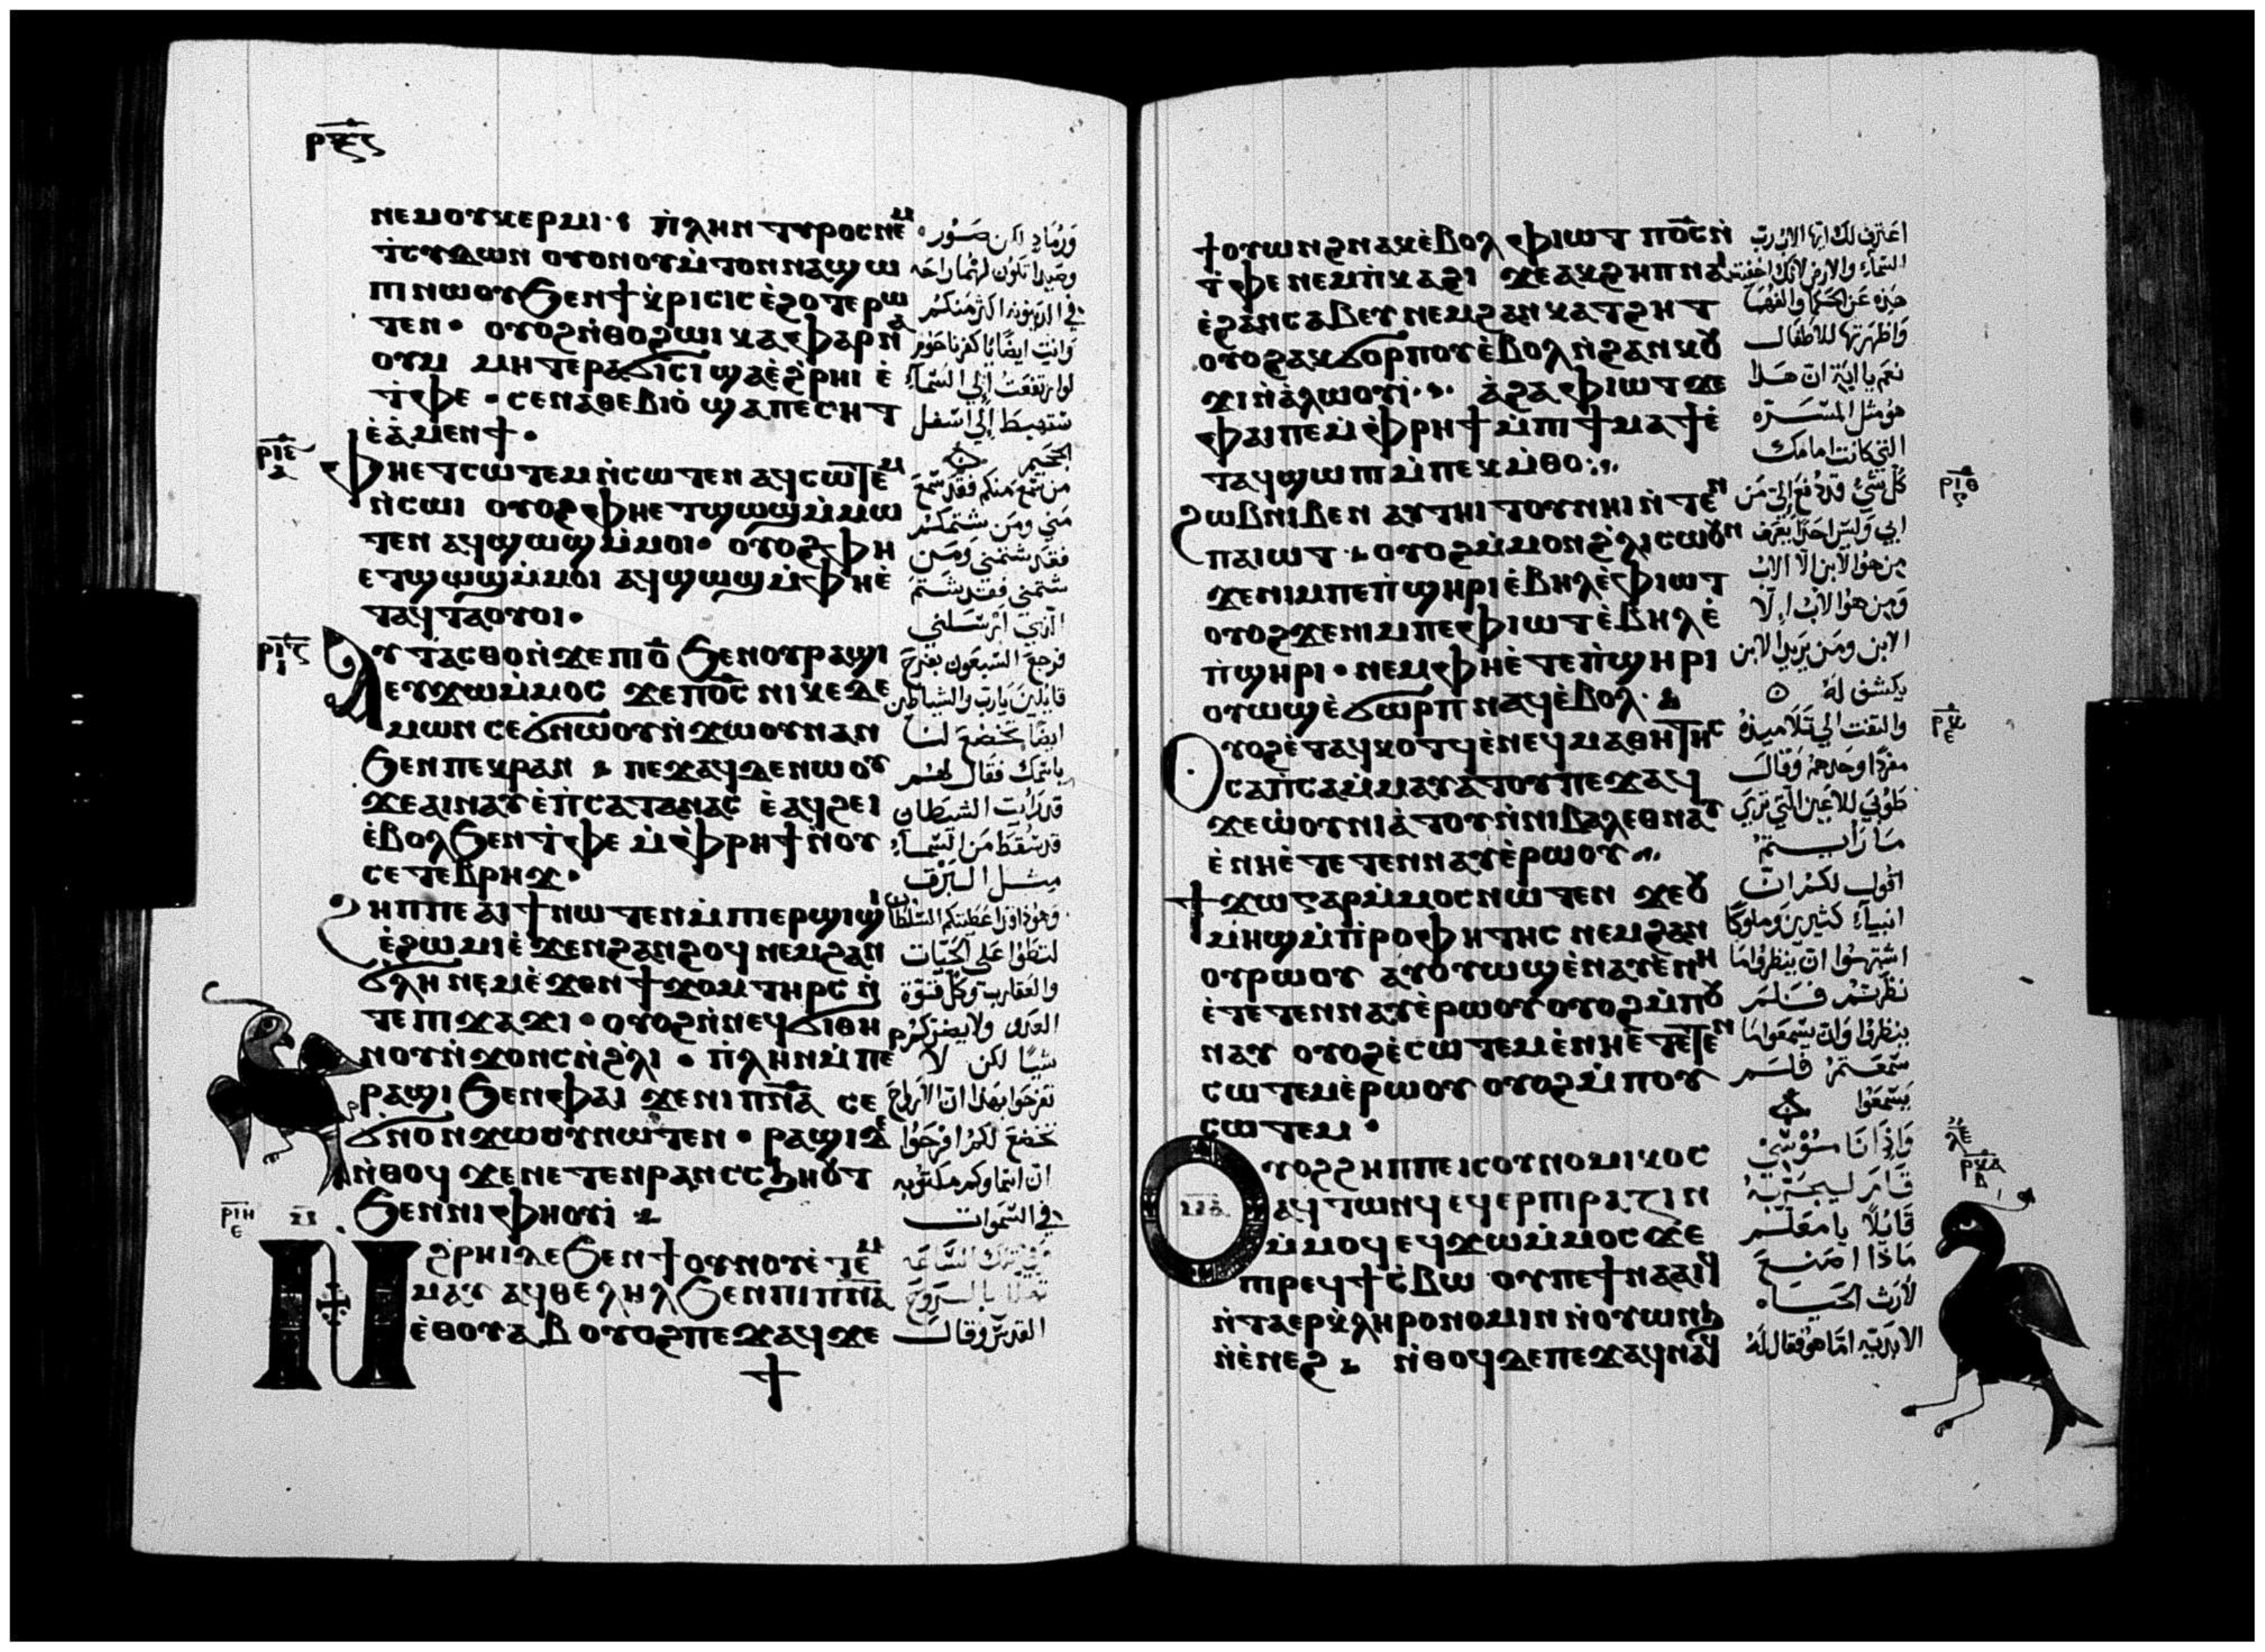 ⲣⲝ̅ⲋ
ⲛⲉⲙⲟⲩⲕⲉⲣⲙⲓ · ⲡ̀ⲗⲏⲛ ⲧⲩⲣⲟⲥ ⲛⲉⲙ
ⲧ̀ⲥⲩⲇⲱⲛ ⲟⲩⲟⲛⲟⲩⲙ̀ⲧⲟⲛⲛⲁϣⲱ
ⲡⲓⲛⲱⲟⲩϧⲉⲛϯⲕ̀ⲣⲓⲥⲓⲥ ⲉ̀ϩⲟⲧⲉⲣⲱ
ⲧⲉⲛ · ⲟⲩⲟϩⲛ̀ⲑⲟϩⲱⲓ ⲕⲁⲫⲁⲣⲛⲁ
ⲟⲩⲙ ⲙⲏⲧⲉⲣⲁϭⲓⲥⲓϣⲁⲉ̀ϩ̀ⲣⲏⲓ ⲉ̀
ⲧ̀ⲫⲉ · ⲥⲉⲛⲁⲑⲉⲃⲓⲟ̀ ϣⲁⲡⲉⲥⲏⲧ
ⲉ̀ⲁ̀ⲙⲉⲛϯ ·
ⲣⲓ̅ⲉ̅
ⲫⲏⲉⲧⲥⲱⲧⲉⲙⲛ̀ⲥⲱⲧⲉⲛ ⲁϥⲥⲱⲧⲉⲙ
ⲛ̀ⲥⲱⲓ ⲟⲩⲟϩ ⲫⲏⲉⲧϣⲱϣⲙ̀ⲙⲱ
ⲧⲉⲛ ⲁϥϣⲱϣⲙ̀ⲙⲟⲓ · ⲟⲩⲟϩ ⲫⲏ
ⲉⲧϣⲱϣⲙ̀ⲙⲟⲓ ⲁϥϣⲱϣⲙ̀ⲫⲏⲉ̀
ⲧⲁϥⲧⲁⲟⲩⲟⲓ ·
ⲣⲓ̅ⲋ
ⲁⲩⲧⲁⲥⲑⲟⲛ̀ϫⲉⲡⲓⲟ̅ ϧⲉⲛⲟⲩⲣⲁϣⲓ
ⲉⲩϫⲱⲙ̀ⲙⲟⲥ ϫⲉⲡⲟ̅ⲥ̅ ⲛⲓⲕⲉⲇⲉ
ⲙⲱⲛ ⲥⲉϭⲛⲱⲟⲩⲛ̀ϫⲱⲟⲩⲛⲁⲛ
ϧⲉⲛⲡⲉⲕⲣⲁⲛ · ⲡⲉϫⲁϥⲇⲉⲛⲱⲟⲩ
ϫⲉⲁⲓⲛⲁⲩⲉ̀ⲡ̀ⲥⲁⲧⲁⲛⲁⲥ ⲉ̀ⲁϥϩⲉⲓ
ⲉ̀ⲃⲟⲗϧⲉⲛⲧ̀ⲫⲉ ⲙ̀ⲫ̀ⲣⲏϯⲛ̀ⲟⲩ
ⲥⲉⲧⲉⲃⲣⲏϫ ·
ϩⲏⲡⲡⲉ ⲁⲓϯⲛⲱⲧⲉⲛⲙ̀ⲡⲓⲉⲣϣⲓϣⲓ
ⲉ̀ϩⲱⲙⲓⲉ̀ϫⲉⲛϩⲁⲛϩⲟϥ ⲛⲉⲙϩⲁⲛ
ϭⲗⲏ ⲛⲉⲙⲉ̀ϫⲉⲛϯϫⲟⲙ ⲧⲏⲣⲥ ⲛ̀
ⲧⲉⲡⲓϫⲁϫⲓ · ⲟⲩⲟϩⲛ̀ⲛⲉϥϭⲓⲑⲏ
ⲛⲟⲩⲛ̀ϫⲟⲛⲥⲛ̀ϩ̀ⲗⲓ · ⲡ̀ⲗⲏⲛⲙ̀ⲡⲉ
ⲣⲣⲁϣⲓ ϧⲉⲛⲫⲁⲓ ϫⲉⲛⲓⲡⲛ̅ⲁ̅ ⲥⲉ
ϭⲛⲟⲛϫⲱⲟⲩⲛⲱⲧⲉⲛ · ⲣⲁϣⲓⲇⲉ
ⲛ̀ⲑⲟϥ ϫⲉⲛⲉⲧⲉⲛⲣⲁⲛⲥⲥϧⲏⲟⲩⲧ
ϧⲉⲛⲛⲓⲫⲏⲟⲩⲓ̀
ⲣⲓ̅ⲏ̅
ⲛ̀ϩⲣⲏⲓⲇⲉϧⲉⲛϯⲟⲩⲛⲟⲩⲉ̀ⲧⲉⲙ
ⲙⲁⲩ ⲁϥⲑⲉⲗⲏⲗϧⲉⲛⲡⲓⲡⲛ̅ⲁ̅
ⲉ̀ⲑⲟⲩⲁⲃ ⲟⲩⲟϩⲡⲉϫⲁϥϫⲉ
ورماد لكن صور
وصيدا تكون لهما راحه
في الدينونه اكثر منكم
وانت ايضا يا كفرناحوم
لو ارتفعت إلي السماء
ستهبط إلي اسفل
الجحيم
من سمع منكم فقد سمع
مني ومن شتمكم
فقد شتمني ومن
شتمني فقد شتم
الذي أرسلني
فرجع السبعون بفرح
قايلين يارب والشياطين
ايضا تخضع لنا
باسمك فقال لهم
قد رأيت الشيطان
قد سقط من السماء
مثل البرق
وهوذا قد اعطيتكم السلطان
لتطوا على الحيات
والعقارب وكل قوة
العدو ولا يضركم
شيا لكن لا
تفرحوا بهذا ان الارواح
تخضع لكم افرحوا
ان اسماوكم مكتوبه
في السموات
في تلك الساعه
تهلل بالروح
القدس وقال
ϯⲟⲩⲱⲛϩⲛⲁⲕⲉ̀ⲃⲟⲗ ⲫⲓⲱⲧ ⲡⲟ̅ⲥ̅ⲛ̀
ⲧ̀ⲫⲉ ⲛⲉⲙⲡ̀ⲕⲁϩⲓ ϫⲉⲁⲕϩⲏⲡⲛⲁⲓ
ⲉ̀ϩⲁⲛⲥⲁⲃⲉⲩ ⲛⲉⲙϩⲁⲛⲕⲁⲧϩⲏⲧ
ⲟⲩⲟϩⲁⲕϭⲟⲣⲡⲟⲩⲉ̀ⲃⲟⲗⲛ̀ϩⲁⲛⲕⲟⲩ
ϫⲓⲛ̀ⲁ̀ⲗⲱⲟⲩⲓ̀ · ⲁ̀ϩⲁⲫⲓⲱⲧ ϫⲉ
ⲫⲁⲓⲡⲉⲙ̀ⲫ̀ⲣⲏϯⲙ̀ⲡⲓϯⲙⲁϯⲉ̀
ⲧⲁϥϣⲱⲡⲓⲙ̀ⲡⲉⲕⲙ̀ⲑⲟ
ϩⲱⲃⲛⲓⲃⲉⲛ ⲁⲩⲧⲏⲓⲧⲟⲩⲛⲏⲓⲛ̀ⲧⲉⲛ
ⲡⲁⲓⲱⲧ · ⲟⲩⲟϩⲙ̀ⲙⲟⲛϩ̀ⲗⲓⲥⲱⲟⲩⲛ
ϫⲉⲛⲓⲙⲡⲉⲡ̀ϣⲏⲣⲓⲉ̀ⲃⲏⲗⲉ̀ⲫⲓⲱⲧ
ⲟⲩⲟϩϫⲉⲛⲓⲙⲡⲉⲫⲓⲱⲧⲉ̀ⲃⲏⲗⲉ̀
ⲡ̀ϣⲏⲣⲓ · ⲛⲉⲙⲫⲏⲉ̀ⲧⲉⲡ̀ϣⲏⲣⲓ
ⲟⲩⲱϣⲉ̀ϭⲱⲣⲡ ⲛⲁϥⲉ̀ⲃⲟⲗ ·
ⲟⲩⲟϩⲉ̀ⲧⲁϥⲕⲟⲧϥⲉ̀ⲛⲉϥⲙⲁⲑⲏⲧⲏⲥ
ⲥⲁⲡ̀ⲥⲁⲙ̀ⲙⲁⲩⲁⲧⲟⲩⲡⲉϫⲁϥ
ϫⲉⲱ̀ⲟⲩⲛⲓⲁ̀ⲧⲟⲩⲛ̀ⲛⲓⲃⲁⲗⲉⲑⲛⲁⲩ
ⲉ̀ⲛⲏⲉ̀ⲧⲉⲧⲉⲛⲛⲁⲩⲉ̀ⲣⲱⲟⲩ
ϯϫⲱⲅⲁⲣⲙ̀ⲙⲟⲥⲛⲱⲧⲉⲛ ϫⲉⲟⲩ
ⲙⲏϣⲙ̀ⲡ̀ⲣⲟⲫⲏⲧⲏⲥ ⲛⲉⲙϩⲁⲛ
ⲟⲩⲣⲱⲟⲩ ⲁⲩⲟⲩⲱϣⲉ̀ⲛⲁⲩⲉ̀ⲛⲏ
ⲉ̀ⲧⲉⲧⲉⲛⲛⲁⲩⲉ̀ⲣⲱⲟⲩ ⲟⲩⲟϩⲙ̀ⲡⲟⲩ
ⲛⲁⲩ ⲟⲩⲟϩⲉ̀ⲥⲱⲧⲉⲙⲉ̀ⲛⲏⲉ̀ⲧⲉⲧⲉⲛ
ⲥⲱⲧⲉⲙⲉ̀ⲣⲱⲟⲩ ⲟⲩⲟϩⲙ̀ⲡⲟⲩ
ⲥⲱⲧⲉⲙ ·
ⲟⲩⲟϩϩⲏⲡⲡⲉⲓⲥⲟⲩⲛⲟⲙⲓⲕⲟⲥ
ⲁϥⲧⲱⲛϥ ⲉϥⲉⲣⲡⲓⲣⲁⲍⲓⲛ
ⲙ̀ⲙⲟϥ ⲉϥϫⲱⲙ̀ⲙⲟⲥ ϫⲉ
ⲡⲓⲣⲉϥϯⲥ̀ⲃⲱ ⲟⲩⲡⲉϯⲛⲁⲁⲓϥ
ⲛ̀ⲧⲁⲉⲣⲕ̀ⲗⲏⲣⲟⲛⲟⲙⲓⲛ ⲛ̀ⲟⲩⲱⲛϧ
ⲛ̀ⲉ̀ⲛⲉϩ · ⲛ̀ⲑⲟϥⲇⲉⲡⲉϫⲁϥⲛⲁϥ
اعترف لك ايها الاب رب
السماء والارض لانك اخفيت
هذه عن الحكما والفهما
واظهرتها للاطفال
نعم يا ابة ان هذا
هو مثل المسرة
التي كانت امامك
كل شئ قد دفع إلي من
ابي وليس احد يعرف
من هو الابن الا الاب
ومن هو الاب إلا
الابن ومن يريد الابن
يكشف له
والتفت الي تلاميذه
مفردا وحدهم وقال
طوبي للاعين التي تري
ما رأيتم
اقول لكم ان
انبياء كثيرين وملوكا
اشتهوا ان ينظروا ما
نظرتم فلم
ينظروا وان يسمعوا ما
سمعتم فلم
يسمعوا
وإذا ناموسي
قام ليجربه
قايلا يا معلم
ماذا اصنع
لارث الحياه
الابديه اما هو فقال له
ⲣⲓ̅ⲑ
ⲣ̅ⲕ
ⲣⲕ̅ⲁ